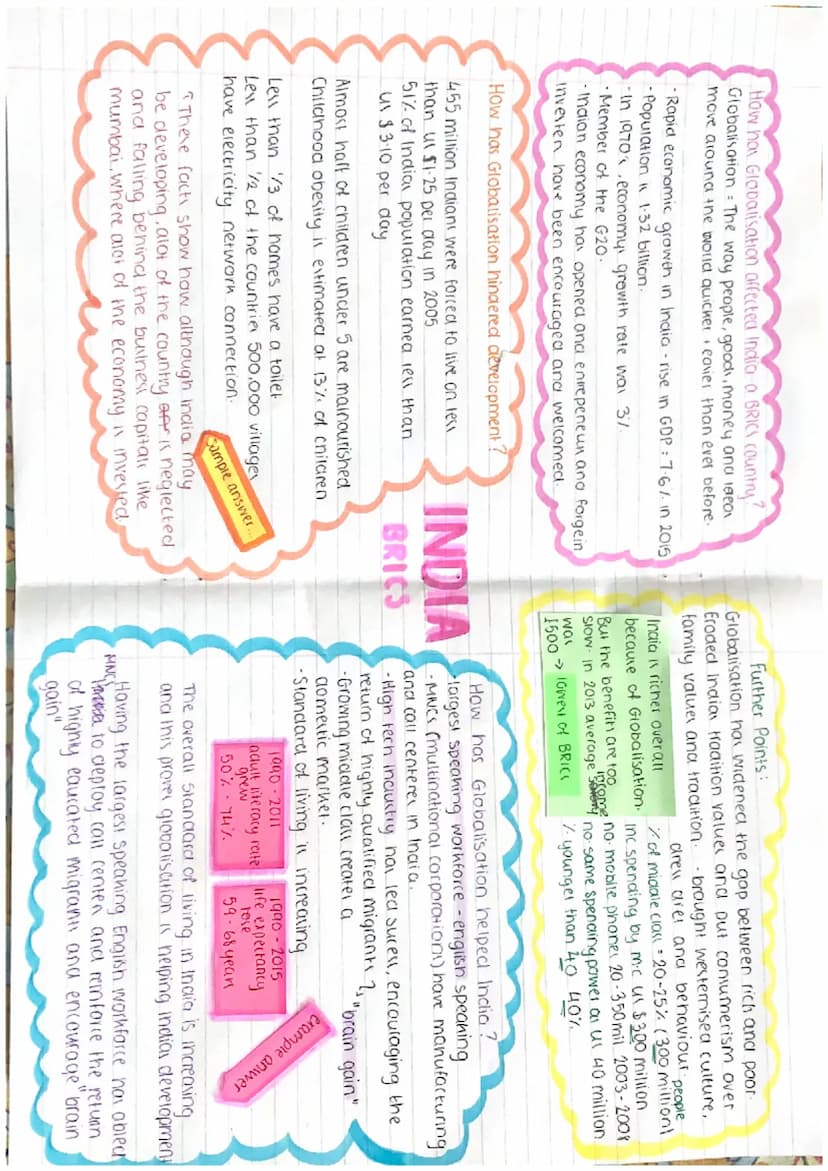 How has Globalisation affected India a BRICs country?
Globalisation = The way people, goods, money and ideas
move around the world quicker + easier than ever before.
- Rapid economic growth in India - rise in GDP = 7.6% in 2015
- Population is 1.32 billion.
- In 1970's, economys growth rate was 3%
- Member of the G20.
- Indian economy has opened and entrepeneurs and forgein
investers have been encouraged and welcomed.
How has Globalisation hindered development?
455 million Indians were forced to live on less
than US $1.25 per day in 2005
51% of Indias population earned less than
US $3.10 per day
Almost half of children under 5 are malnourished
Childhood obesity is estimated at 13% of children
Less than 1/3 of homes have a toilet
Less than 1/2 of the countries 500,000 villages
have electricity network connection.
Sample answer...
These facts show how although India may
be developing, alot of the country is neglected
and falling behind the business capitals like
mumbai, where alot of the economy is invested.
INDIA
BRICS
Further Points:
Globalisation has widened the gap between rich and poor.
Eroded Indias tradition values and put consumerism over
family values and tradition. - brought westernised culture,
dress area and behaviour.
India is richer overall
because of Globalisation.
But the benefits are too
slow. in 2013 average income
was
1500 → lowest of BRICs
% of middle class = 20-25% (300 million) people
inc spending by m.c US $200 million
no. mobile phones 20-350 mil 2003-2008
no. same spending power as US 40 million
% younger than 40 40%
How has Globalisation helped India?
- largest speaking workforce - english speaking
- MNCs (multinational corporations) have manufacturing
and call centeres in India.
- High tech industry has led sucess, encouraging the
return of highly qualified migrants? "brain gain"
- Growing middle class creates a
domestic market.
- Standard of living is increasing
1990 - 2011
adult literacy rate
grew
50% - 74%
1990 - 2015
life expectancy
rose
59 - 68 years
example answer
The overall standard of living in India is increasing
and this proves globalisation is helping indias development
Having the largest speaking English workforce has abled
MNCs to deploy call centers and reinforce the return
of highly educated migrants and encourage "brain
gain"